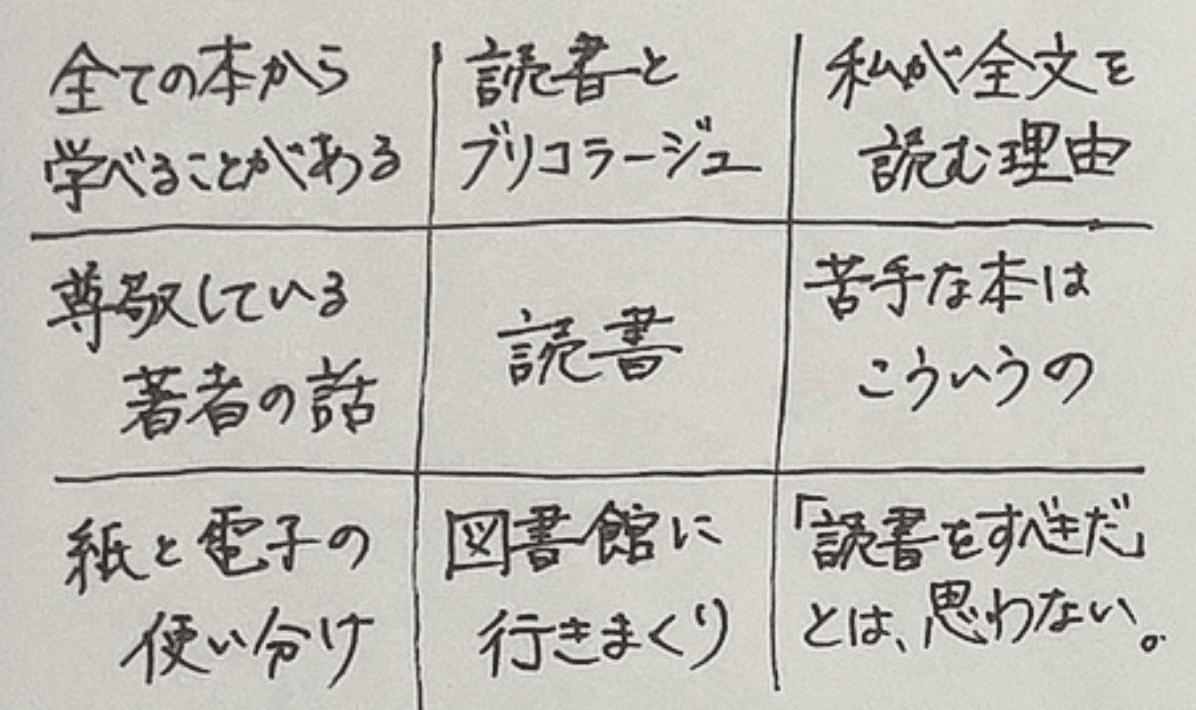 全ての本から
学べることがある
読書と
ブリコラージュ
私が全文を
読む理由
尊敬している
著者の話
読書
苦手な本は
こういうの
紙と電子の
使い分け
図書館に
行きまくり
「読書をすべきだ」
とは、思わない。